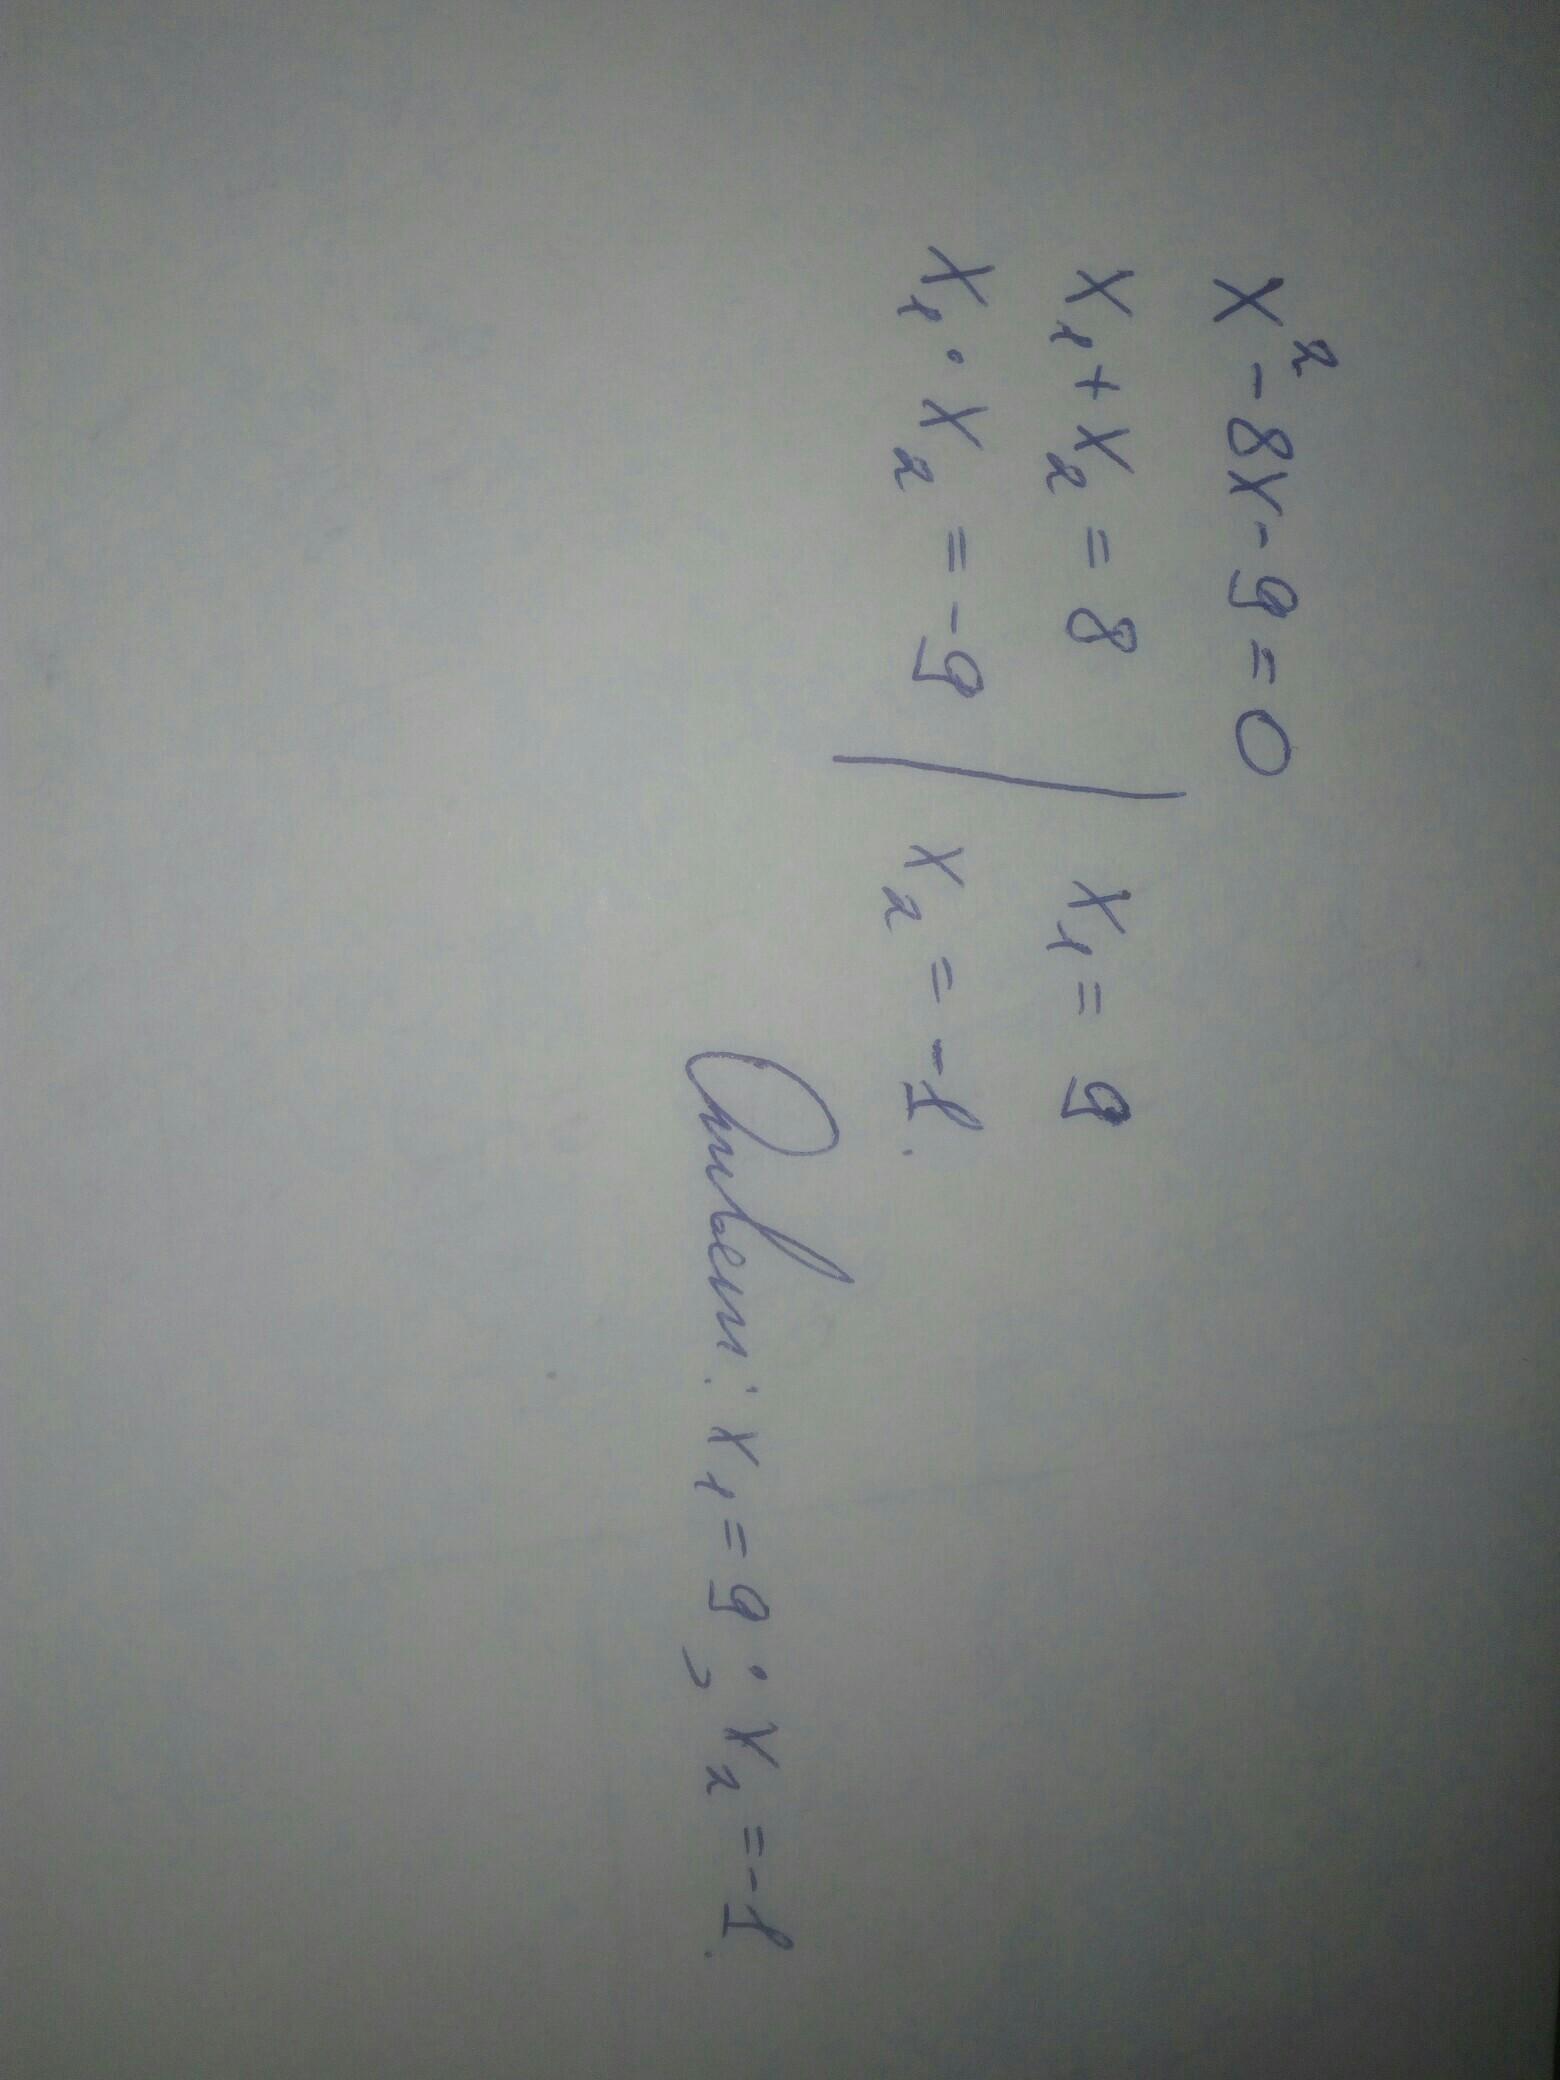 x² - 8x - 9 = 0
x₁ + x₂ = 8 | x₁ = 9
x₁ · x₂ = -9 | x₂ = -1.
Ответ: x₁ = 9; x₂ = -1.